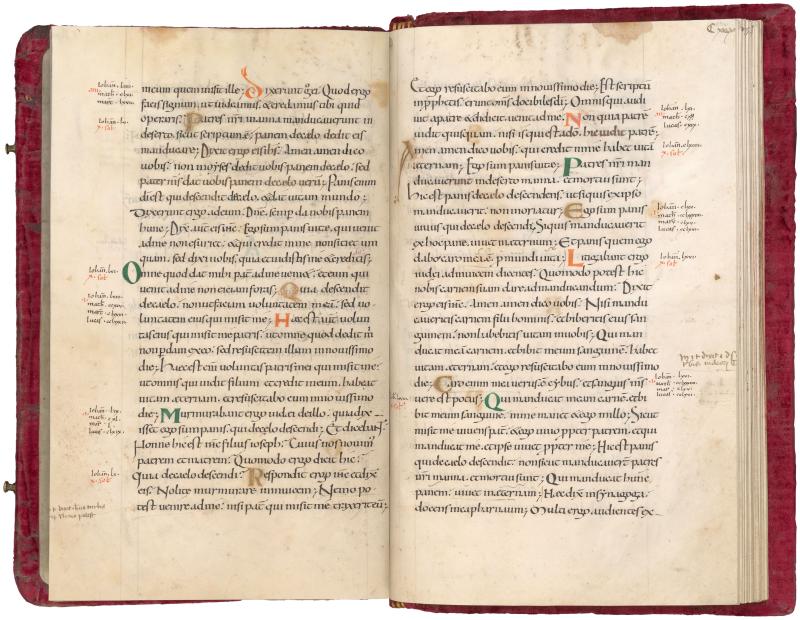 meum quem misit ille; Dixerunt ergo ei. Quod ergo
facis signum. ut uideamus. & credamus tibi quid
operaris. Patres nr̄i manna manducauerunt in
deserto. sicut scriptum ē. panem decaelo dedit eis
manducare; Dixit ergo eis ihs̄. Amen amen dico
uobis. non moyses dedit uobis panem decaelo. sed
pater m̄s dat uobis panem decaelo uerū; Panis enim
di est qui descendit decaelo. & dat uitam mundo;
Dixerunt ergo adeum. Dn̄e. semp da nobis panem
hunc; Dix̄ aut̄ eis ihc̄. Ego sum panis uitae. qui uenit
adme non esuriet. & qui credit in me non sitiet um
quam. sed dixi uobis. quia & uidistis me & creditis;
Omne quod dat mihi pat̄. adme ueni&. & eum qui
uenit adme non eiciam foras; Quia descendi
decaelo. non ut faciam uoluntatem meā. sed uo
luntatem eius qui misit me; Haec est aut̄ uolun
tas eius qui misit me patris. ut omne quod dedit m̄
non pdam exeo. sed resuscitem illum innouissimo
die; Haec est em̄ uoluntas patris mei qui misit me.
ut omnis qui uidit filium & credit in eum. habeat
uitam aeternam. & resuscitabo eum innouissimo
die; Murmurabant ergo iudei deillo. quia dix
isset ego sum panis. qui decaelo descendi; Et dicebant.
Nonne hic est ihc̄ filius ioseph. Cuius nos nouim;
patrem & matrem. Quomodo ergo dicit hic.
Quia decaelo descendi. Respondit ergo ihc̄ & dix̄
eis. Nolite murmurare ininuicem; Nemo po
test uenire adme. nisi pat̄ qui misit me traxerit eū;
Et ego resuscitabo eum innouissimo die; Est scriptū
inpph&is. erunt om̄s docibiles dī; Omnis qui audi
uit apatre & didicit. uenit adme. Non quia patrē
uidit quisquam. nisi is qui est adō. hic uidit patrē;
Amen amen dico uobis. qui credit in me habet uitā
aeternam; Ego sum panis uitae; Patres ur̄i man
ducauerunt indeserto manna. & mortui sunt;
Hic est panis decaelo descendens. ut siquis exipso
manducauerit non moriatur; Ego sum panis
uiuus qui decaelo descendi; Siquis manducauerit
ex hoc pane. uiuet inaeternum; Et panis quem ego
dabo caro mea ē. p mundi uita; Litigabant ergo
iudei adinuicem dicentes. Quomodo potest hic
nobis carnem suam dare admanducandum; Dixit
ergo eis ihc̄. Amen amen dico uobis. Nisi mandu
caueritis carnem filii hominis. & biberitis eius san
guinem. non habebitis uitam inuobis; Qui man
ducat meā carnem. & bibit meum sanguinē. habet
uitam aeternam. & ego resuscitabo eum innouissimo
die; Caro enim mea uerus ē cybus. & sanguis m̄s
uere est potus; Qui manducat meam carnē. & bi
bit meum sanguinē. in me manet & ego in illo; Sicut
misit me uiuens pat̄. & ego uiuo ppter patrem. & qui
manducat me. & ipse uiuet ppter me; Hic est panis
qui decaelo descendit. non sicut manducauerunt patres
ur̄i manna. & mortui sunt; Qui manducat hunc
panem. uiuet inaeternum; Haec dix̄ insynagoga
docens incapharnaum; Multi ergo audientes ex